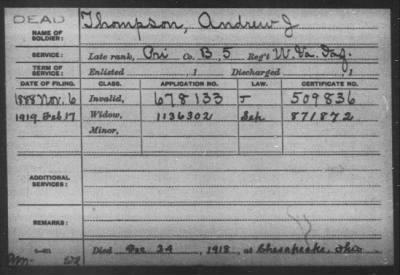 DEAD
NAME OF SOLDIER: Thompson, Andrew J
SERVICE: Late rank, Pri Co. B, 5 Reg't W. Va. Inf.
TERM OF SERVICE: Enlisted , 1 Discharged , 1
DATE OF FILING. CLASS. APPLICATION NO. LAW. CERTIFICATE NO.
1888 Nov. 6 Invalid, 678133 J 509836
1919 Feb 17 Widow, 1136302 Sep. 871872
Minor,
ADDITIONAL SERVICES:
REMARKS:
Died Dec 24, 1918, at Chesapeake, Ohio